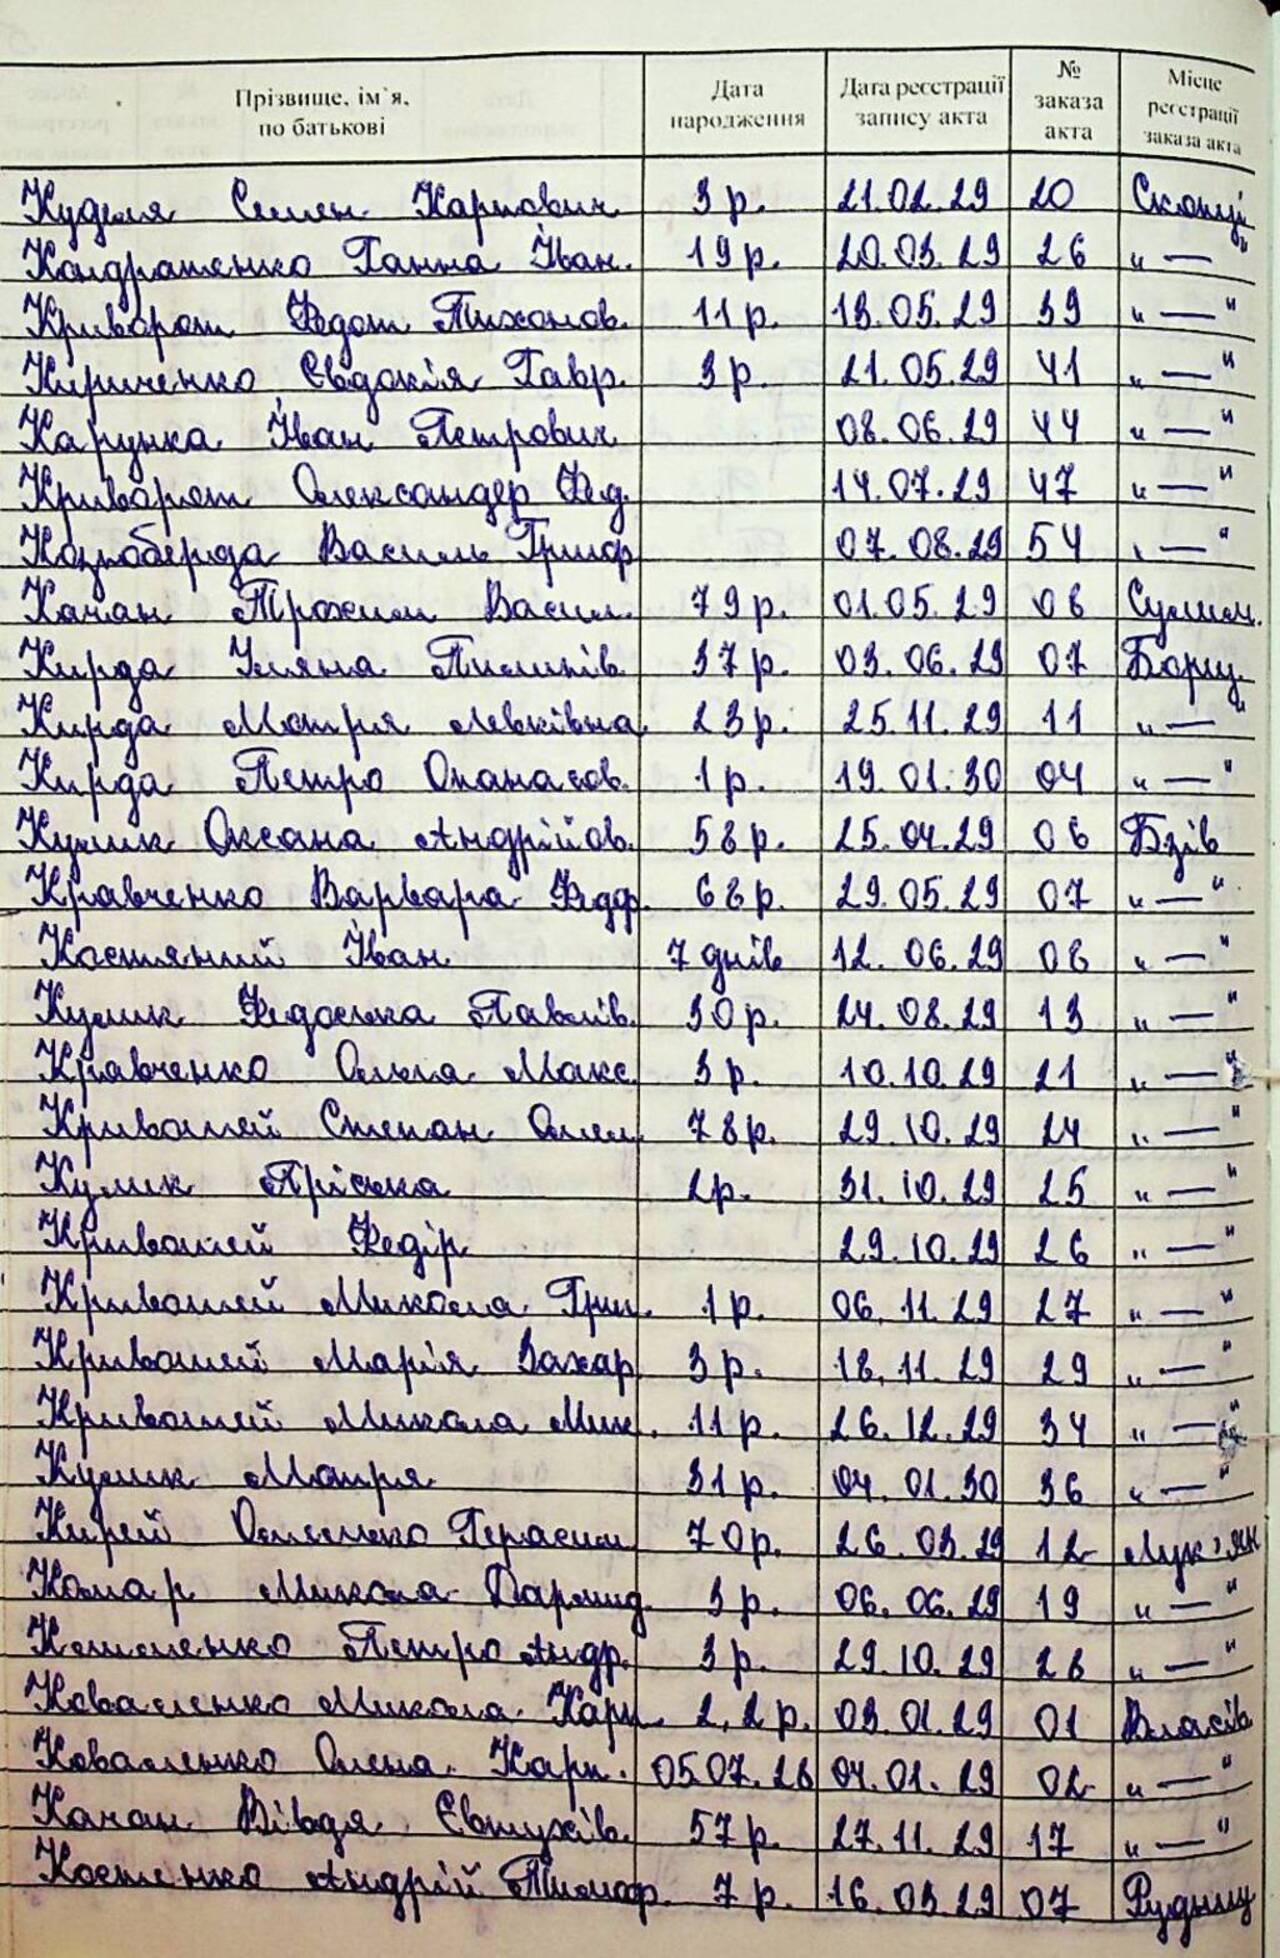 Прізвище, ім`я, по батькові | Дата народження | Дата реєстрації запису акта | № заказа акта | Місце реєстрації заказа акта
Куделя Семен Карпович 3 р. 21.02.29 20 Скопці
Кондратенко Ганна Іван. 19 р. 20.03.29 26 "—"
Криворот Федот Тихонов. 11 р. 13.05.29 39 "—"
Кириченко Євдокія Гавр. 3 р. 21.05.29 41 "—"
Карунка Іван Петрович 08.06.29 44 "—"
Криворот Олександер Фед. 14.07.29 47 "—"
Козлоберда Василь 07.08.29 54 "—"
Качан Трохим Васил. 79 р. 01.05.29 08 Сулим.
Кирда Уляна Пилипів. 37 р. 03.06.29 07 Борщ.
Кирда Мотря Левківна 23 р. 25.11.29 11 "—"
Кирда Петро Опанасов. 1 р. 19.01.30 04 "—"
Кулик Оксана Андрійов. 58 р. 25.04.29 06 Бзів
Кравченко Варвара Федф. 68 р. 29.05.29 07 "—"
Костяний Іван 7 днів 12.06.29 08 "—"
Кулик Федоська Павлів. 30 р. 24.08.29 13 "—"
Кравченко Ольга Макс. 3 р. 10.10.29 21 "—"
Кривошей Степан Омел. 78 р. 29.10.29 24 "—"
Кулик Пріська 2 р. 31.10.29 25 "—"
Кривошей Федір 29.10.29 26 "—"
Кривошей Микола Гри. 1 р. 06.11.29 27 "—"
Кривошей Марія Захар 3 р. 18.11.29 29 "—"
Кривошей Микола Мик. 11 р. 26.12.29 34 "—"
Кулик Мотря 31 р. 04.01.30 36 "—"
Кирей Олелько Герасим 70 р. 26.03.29 12 Лук'ян
Комар Микола 3 р. 06.06.29 19 "—"
Петро Андр. 3 р. 29.10.29 28 "—"
Коваленко Микола Карп. 2,2 р. 03.01.29 01 Власів
Коваленко Олена Карп. 05.07.28 04.01.29 02 "—"
Качан Вівдя Євтухів. 57 р. 27.11.29 17 "—"
Костенко Андрій Тимоф. 7 р. 16.03.29 07